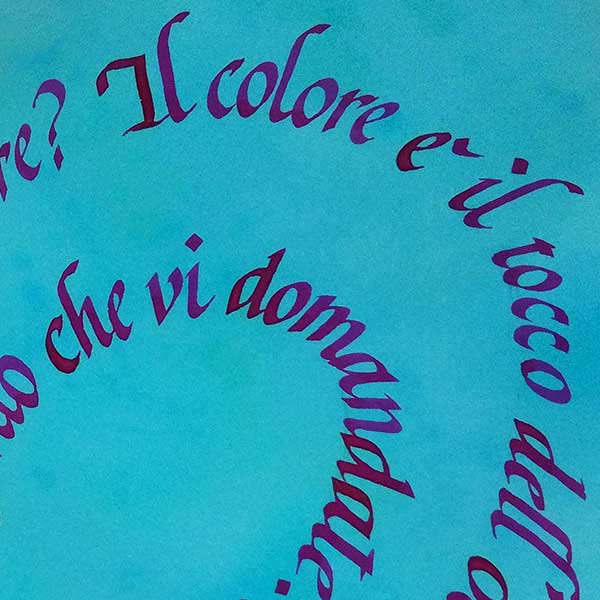 re? Il colore è il tocco dell'o
che vi domandate: